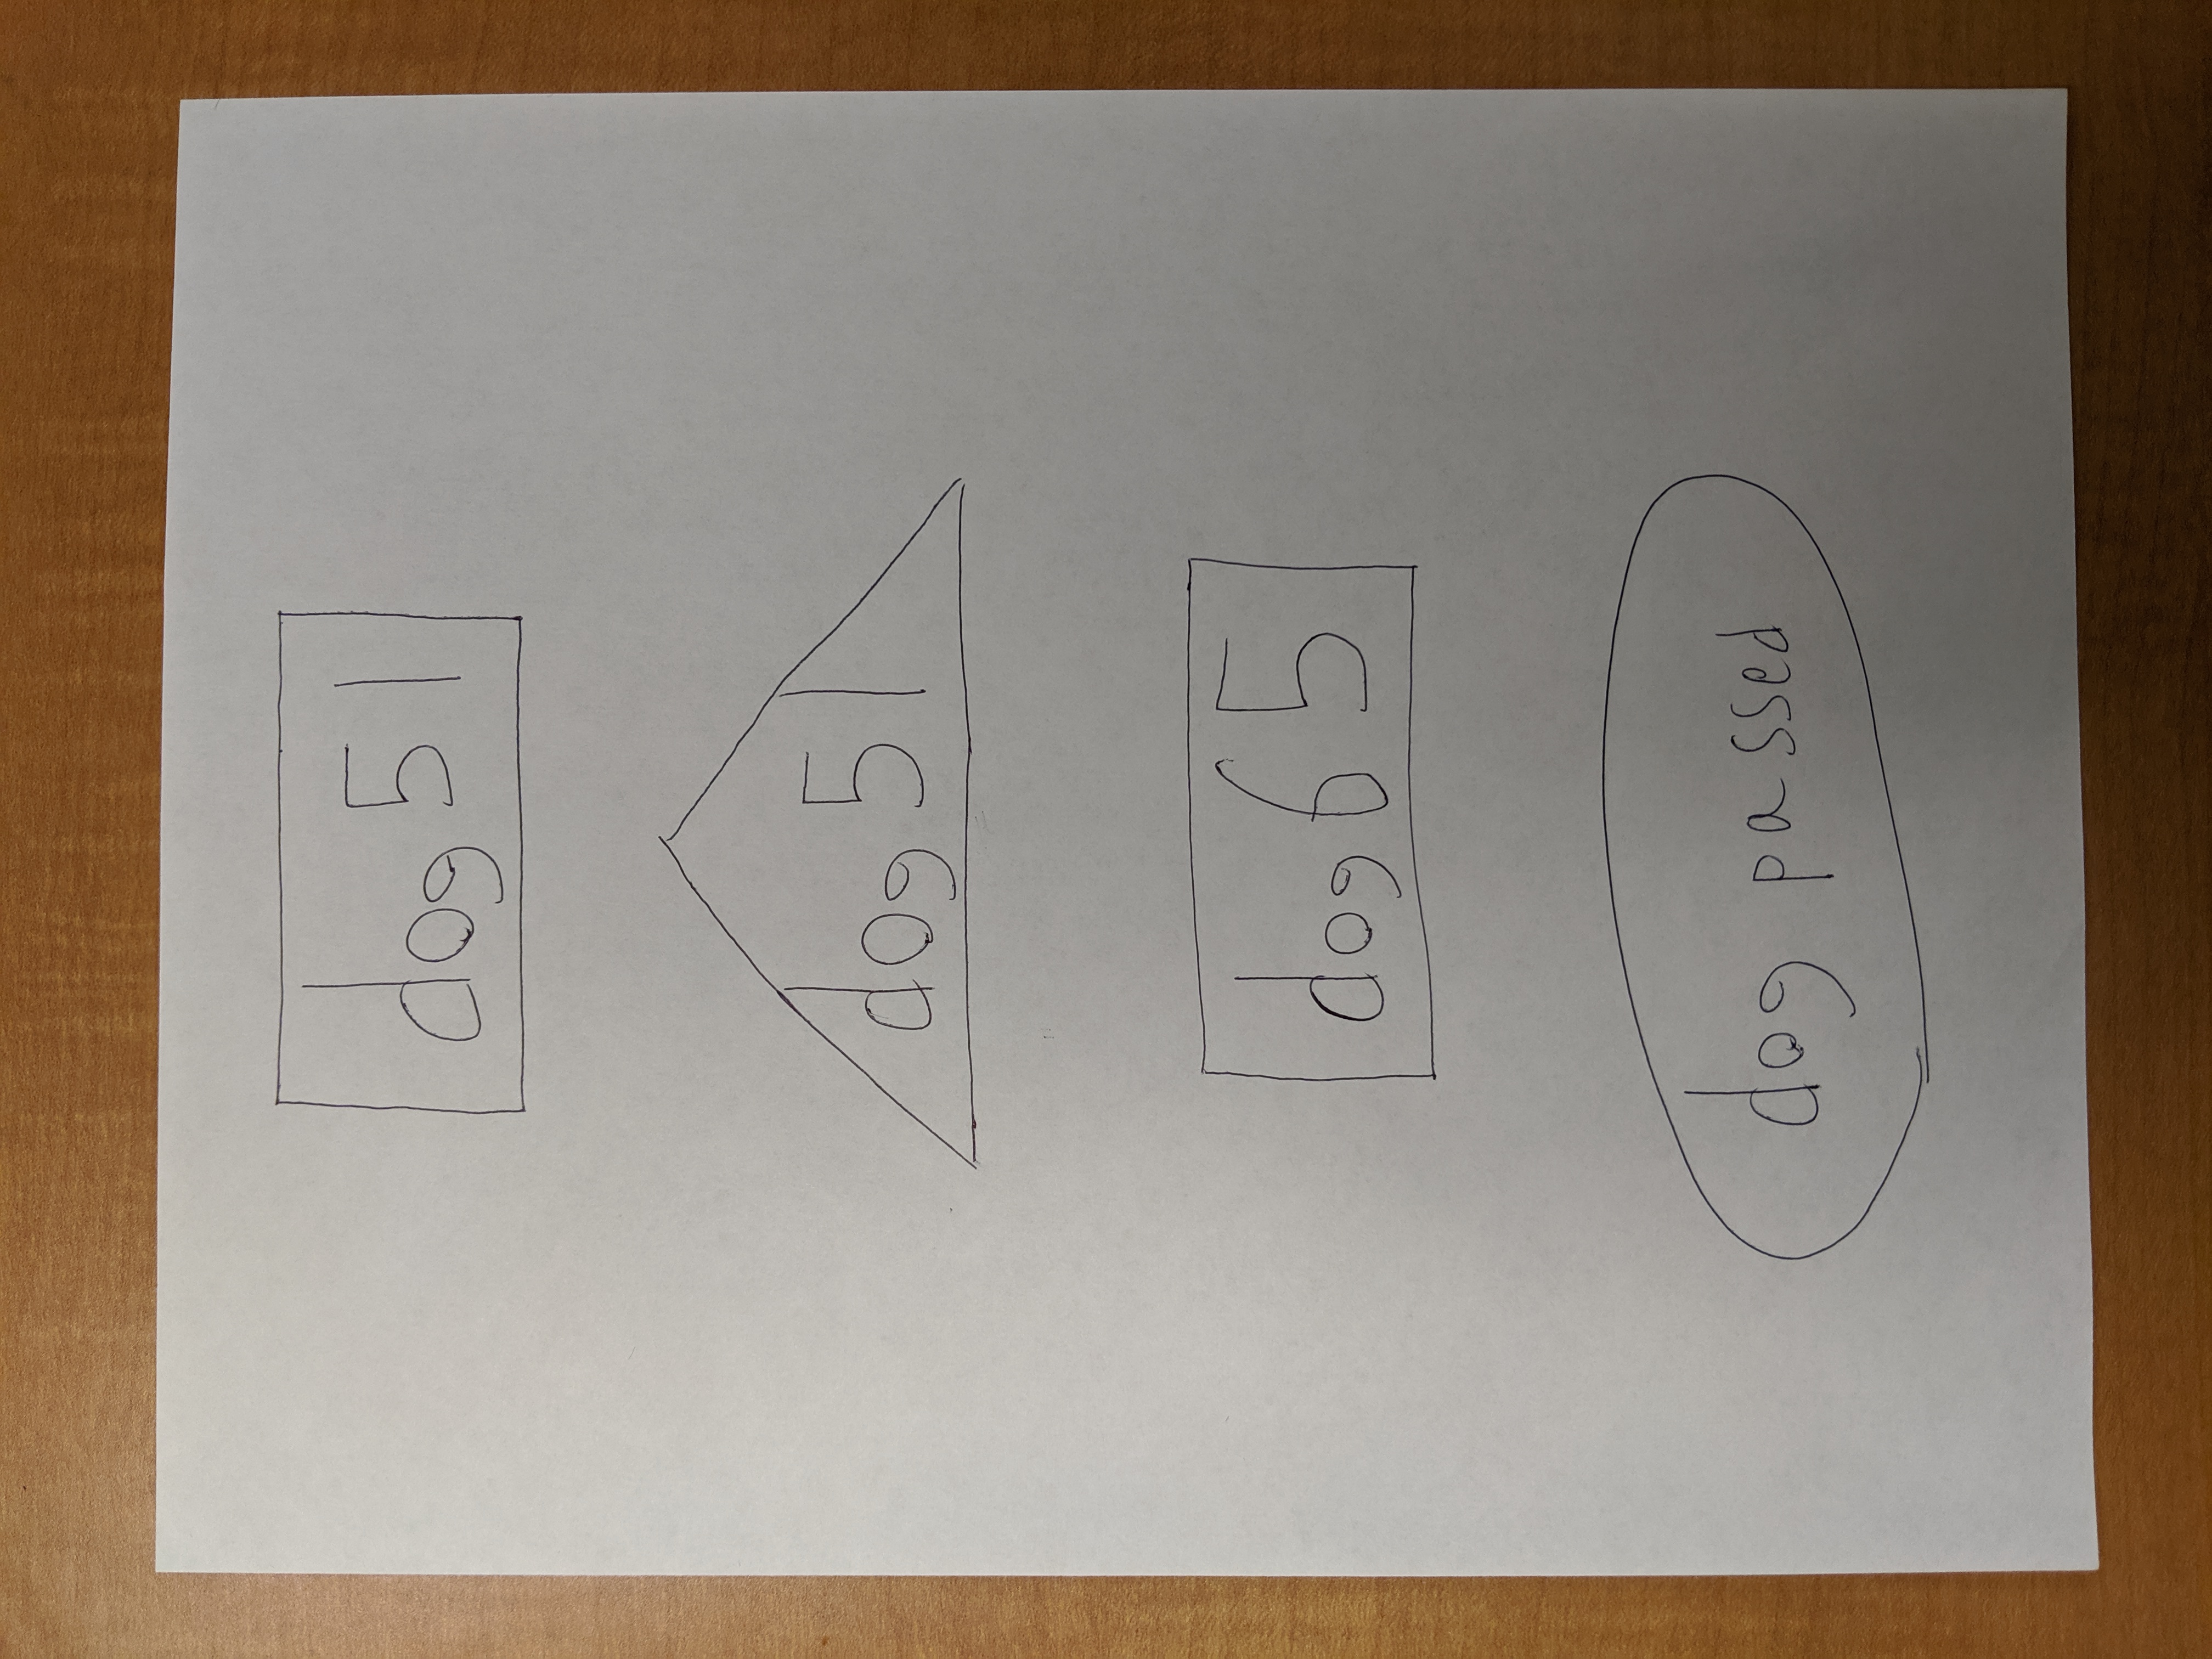 dog 51
dog 51
dog 65
dog passed